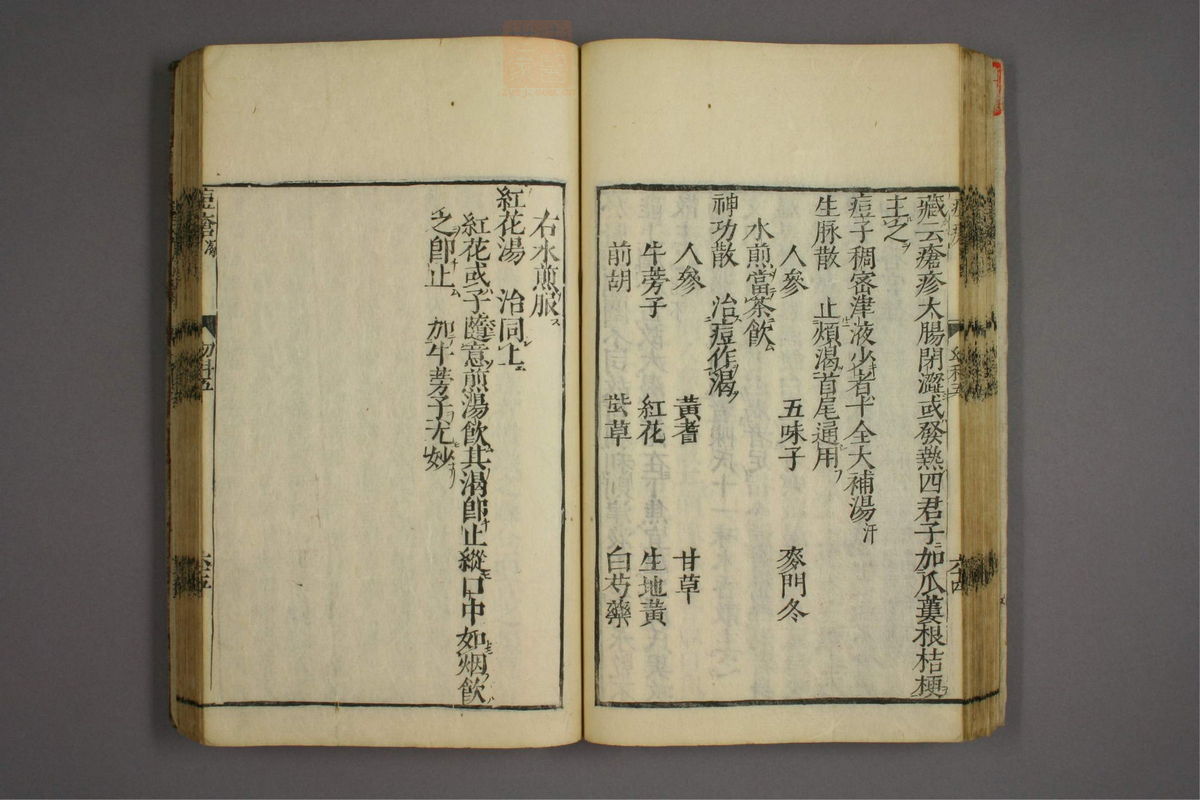 藏云瘡疹大腸閉澀或發熱四君子加瓜蔞根桔梗
主之
痘子稠密津液少者十全大補湯汗
生脉散　止煩渴首尾通用
人參　五味子　麥門冬
水煎當茶飲
神功散　治痘作渴
人參　黃耆　甘草
牛蒡子　紅花　生地黃
前胡　紫草　白芍藥
右水煎服
紅花湯　治同上
紅花或子隨意煎湯飲其渴卽止縱口中如烟飲
之卽止　加牛蒡子尤妙
痘瘡
幼科五
六十五